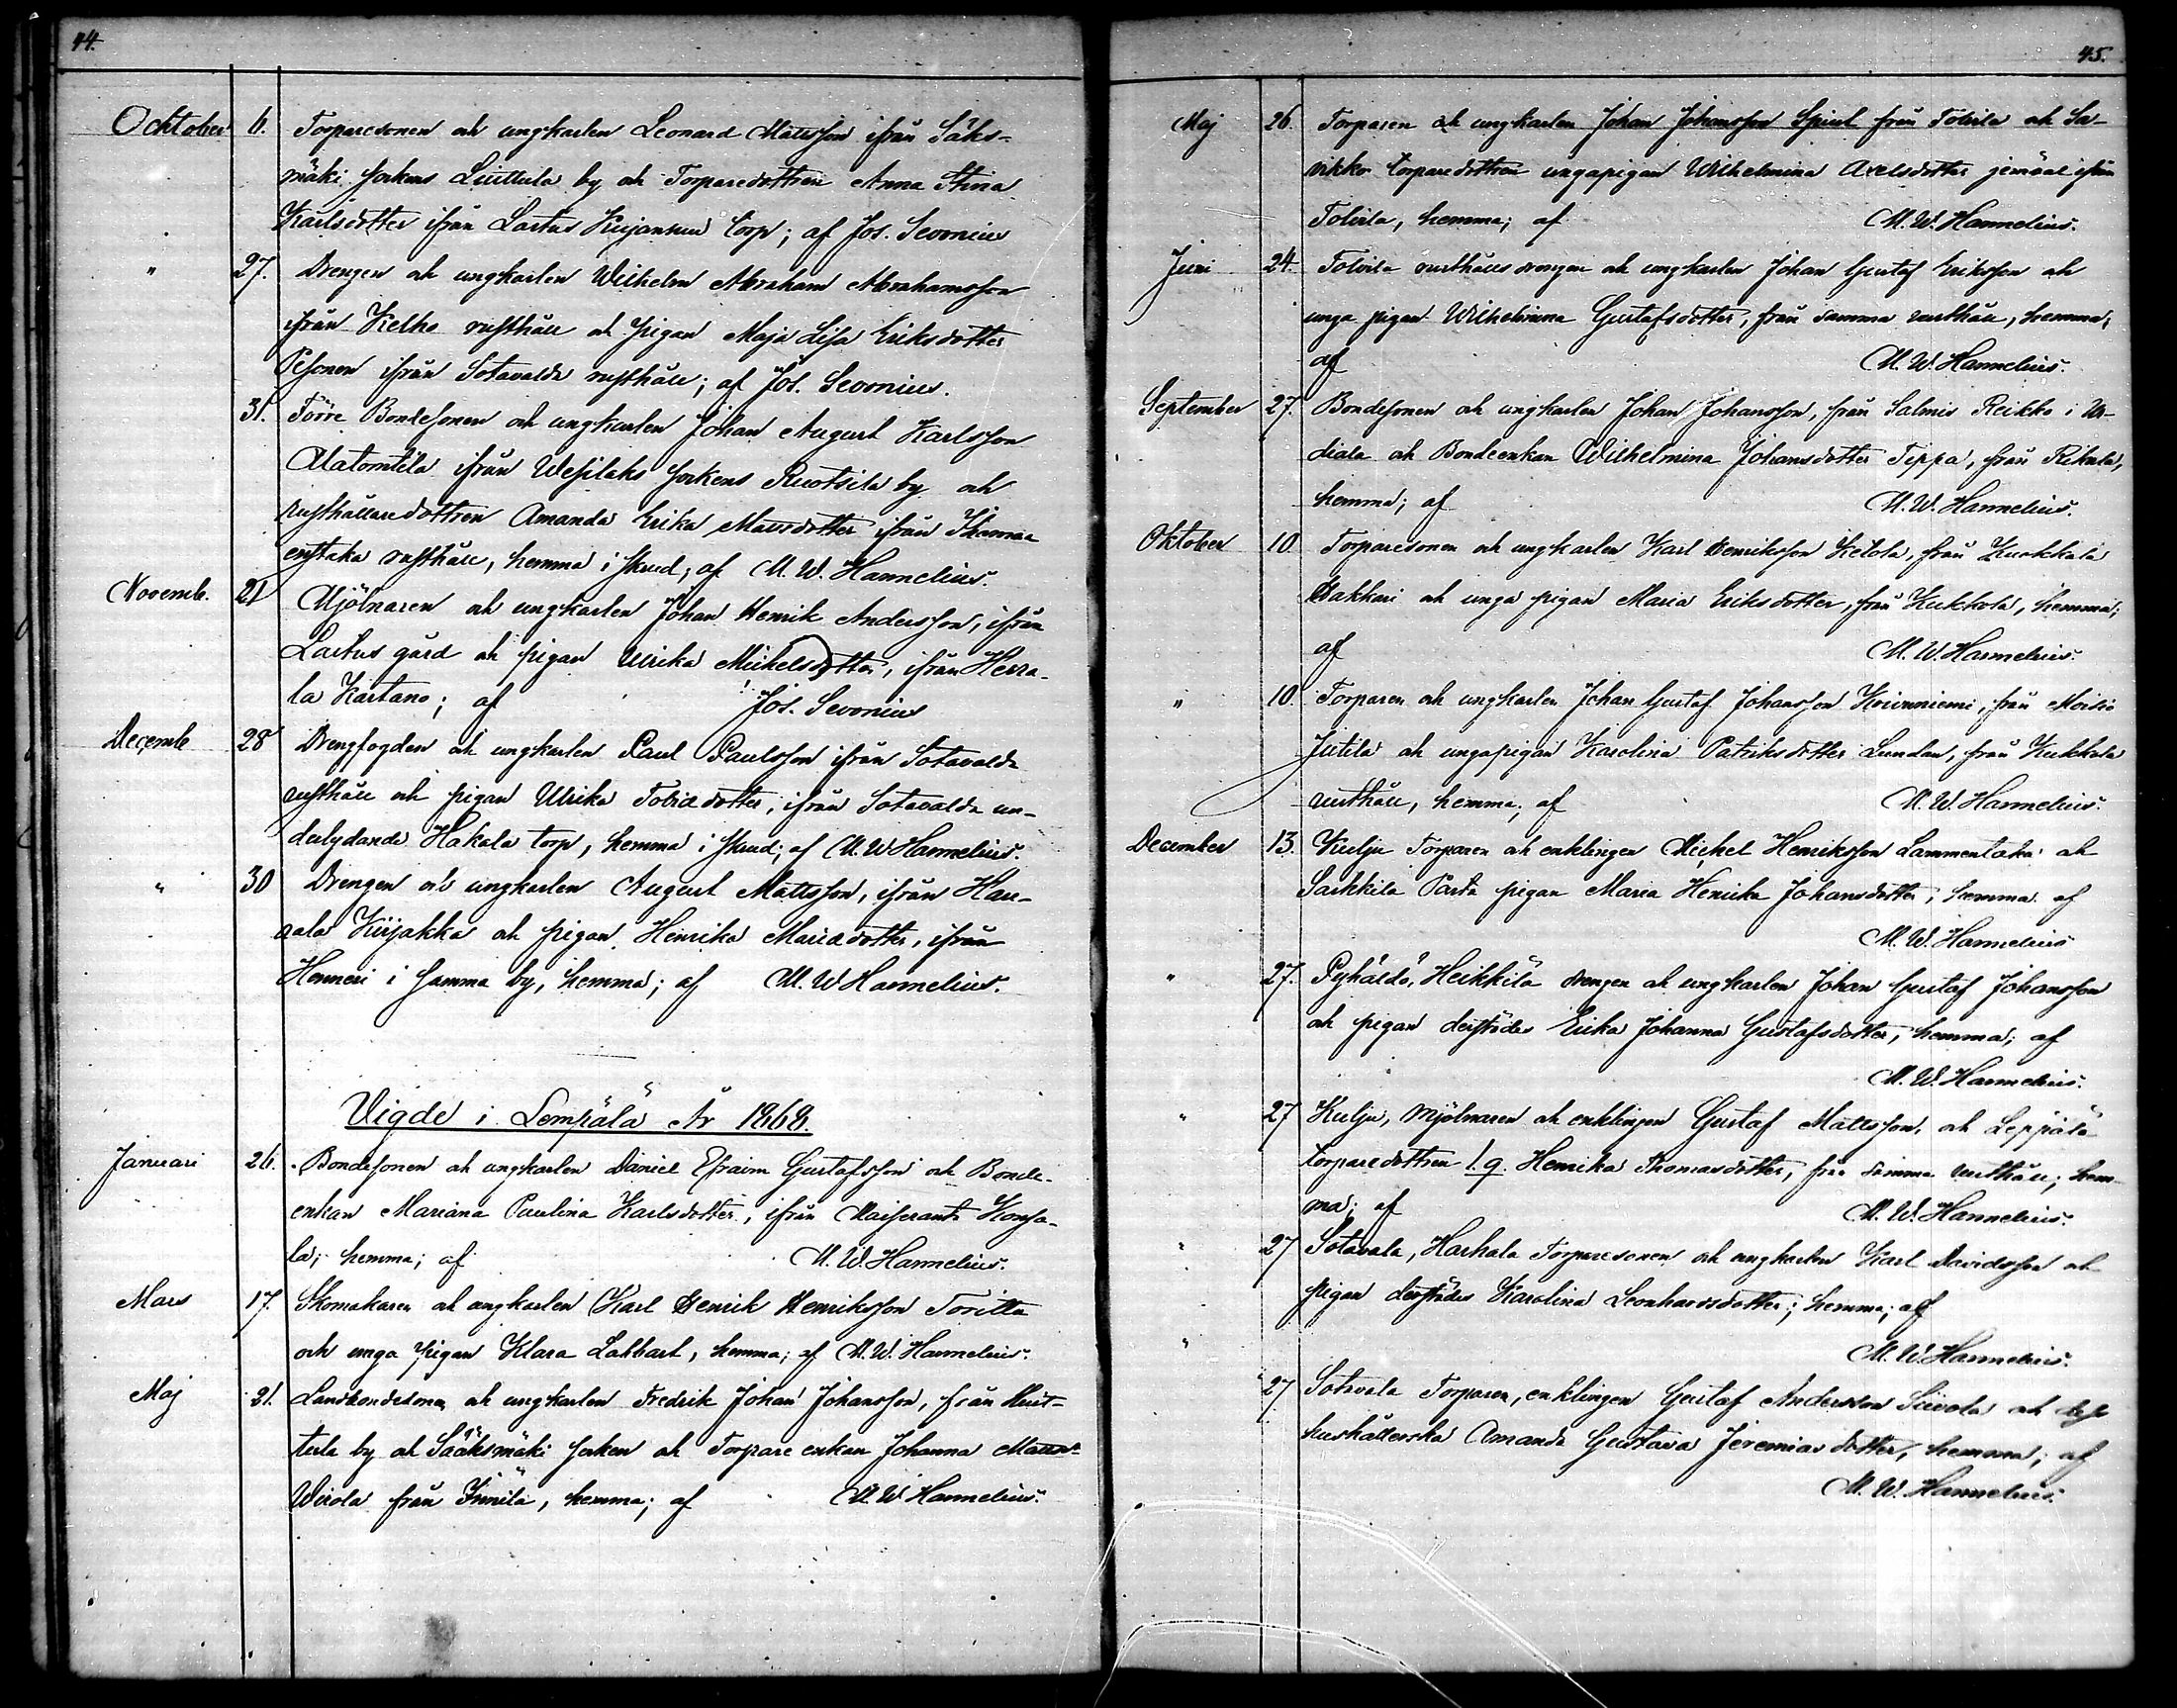 44.
Ocktober 6. Torparesonen och ungkarlen Leonard Mattsson ifrån Säks-
mäki sockens Liuttula by och Torparedottren Anna Stina
Karlsdotter ifrån Lastus Kujansuu torp; af Jos. Sevonius
" 27. Drengen och ungkarlen Wilhelm Abraham Abrahamsson
ifrån Kelho rusthåll och pigan Maja Lisa Eriksdotter
Pesonen ifrån Sotavalda rusthåll; af Jos. Sevonius.
31. Förre Bondesonen och ungkarlen Johan August Karlsson
Alatomtila ifrån Wesilaks sockens Ruotsila by och
rusthållaredottren Amanda Erika Mattsdotter ifrån
enstaka rusthåll, hemma i Skrud; af M. W. Hannelius.
Novemb. 21 Mjölnaren och ungkarlen Johan Henrik Andersson, ifrån
Lastus gård och pigan Ulrika Mickelsdotter, ifrån Herra-
la Kartano; af Jos. Sevonius
Decemb 28 Drengfogden och ungkarlen Paul Paulsson ifrån Sotavalda
rusthåll och pigan Ulrika Tobiædotter, ifrån Sotavalda un-
derlydande Hakala torp, hemma i Skrud; af M. W. Hannelius.
" 30 Drengen och ungkarlen August Mattsson, ifrån Hau-
rala Kirjakka och pigan Henrika Mariædotter, ifrån
Henneri i samma by, hemma; af M. W. Hannelius.
Vigde i Lempälä År 1868.
Januari 26. Bondesonen och ungkarlen Daniel Efraim Gustafsson och Bonde-
enkan Mariana Paulina Karlsdotter, ifrån Maiseranta Konsa-
la; hemma; af M. W. Hannelius.
Mars 17. Skomakaren och ungkarlen Karl Henrik Henriksson Toritta
och unga pigan Klara Labbart, hemma; af M. W. Hannelius.
Maj 21. Landbondesonen och ungkarlen Fredrik Johan Johansson, från Huit-
tula by och Sääksmäki socken och Torpare enkan Johanna Mattsd:r
Wirola från Innilä, hemma; af M. W. Hannelius.
45.
Maj 26. Torparen och ungkarlen Johan Johansson Spirel från Tolvila och Sa-
vikko torparedottren ungapigan Wilhelmina Axelsdotter jemväl ifrån
Tolvila, hemma; af M. W. Hannelius.
Juni 24. Tolvila rusthålls drengen och ungkarlen Johan Gustaf Eriksson och
unga pigan Wilhelmina Gustafsdotter, från samma rusthåll, hemma;
af M. W. Hannelius.
September 27. Bondesonen och ungkarlen Johan Johansson, från Salmis Reikko i Ur-
diala och Bondeenkan Wilhelmina Johansdotter Tippa, från Rikala,
hemma; af M. W. Hannelius.
Oktober 10 Torparesonen och ungkarlen Karl Henriksson Ketola, från Kuokkala
Hakkari och unga pigan Maria Eriksdotter, från Kukkola, hemma;
af M. W. Hannelius.
" 10. Torparen och ungkarlen Johan Gustaf Johansson Koivuniemi, från Moisio
Jutila och ungapigan Karolina Patriksdotter Lundan, från Kukkola
rusthåll, hemma; af M. W. Hannelius.
December 13. Kulju Torparen och enklingen Michel Henriksson Lammentaka och
Sarkkila Parta pigan Maria Henrika Johansdotter, hemma af
M. W. Hannelius
" 27. Pyhäldö, Heikkilä drengen och ungkarlen Johan Gustaf Johansson
och pigan derstädes Erika Johanna Gustafsdotter, hemma; af
M. W. Hannelius.
" 27 Kulju, mjölnaren och enklingen Gustaf Mattsson, och Leppälä
torparedottren l. q. Henrika Thomasdotter, från samma rusthåll; hem-
ma; af M. W. Hannelius.
" 27 Sotavala, Harhala Torparesonen och ungkarlen Karl Davidsson och
pigan derstädes Karolina Leonhardsdotter; hemma; af
" M. W. Hannelius.
27 Sotavala Torparen, enklingen Gustaf Andersson Siivola och dess
hushållerska Amanda Gustava Jeremias dotter, hemma; af
M. W. Hannelius.